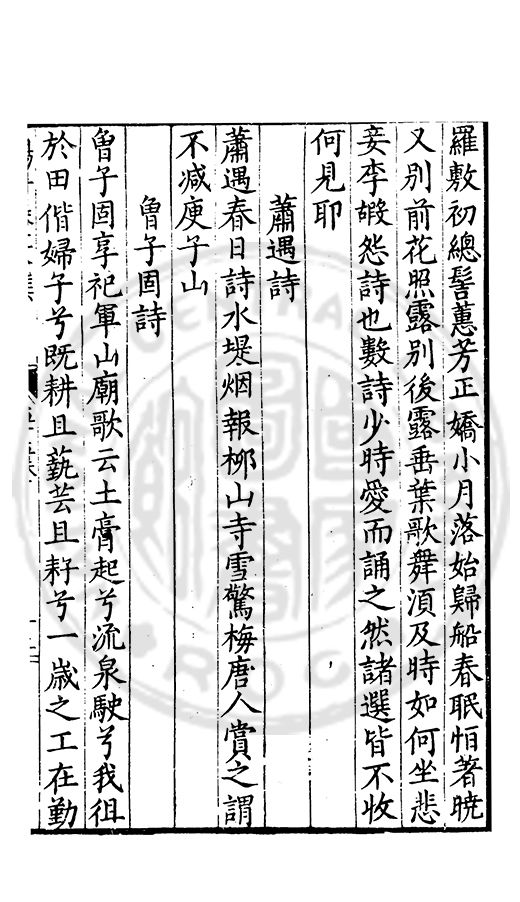 羅敷初總髻蕙芳正嬌小月落始歸船春眠怕著曉
又別前花照露別後露垂葉歌舞湏及時如何坐悲
妾李嘏怨詩也數詩少時愛而誦之然諸選皆不收
何見耶
蕭遇詩
蕭遇春日詩水堤烟報栁山寺雪驚梅唐人賞之謂
不减庾子山
曾子固詩
曾子固享祀軍山廟歌云土膏起兮流泉駛兮我徂
於田偕婦子兮既耕且蓺芸且耔兮一歲之工在勤